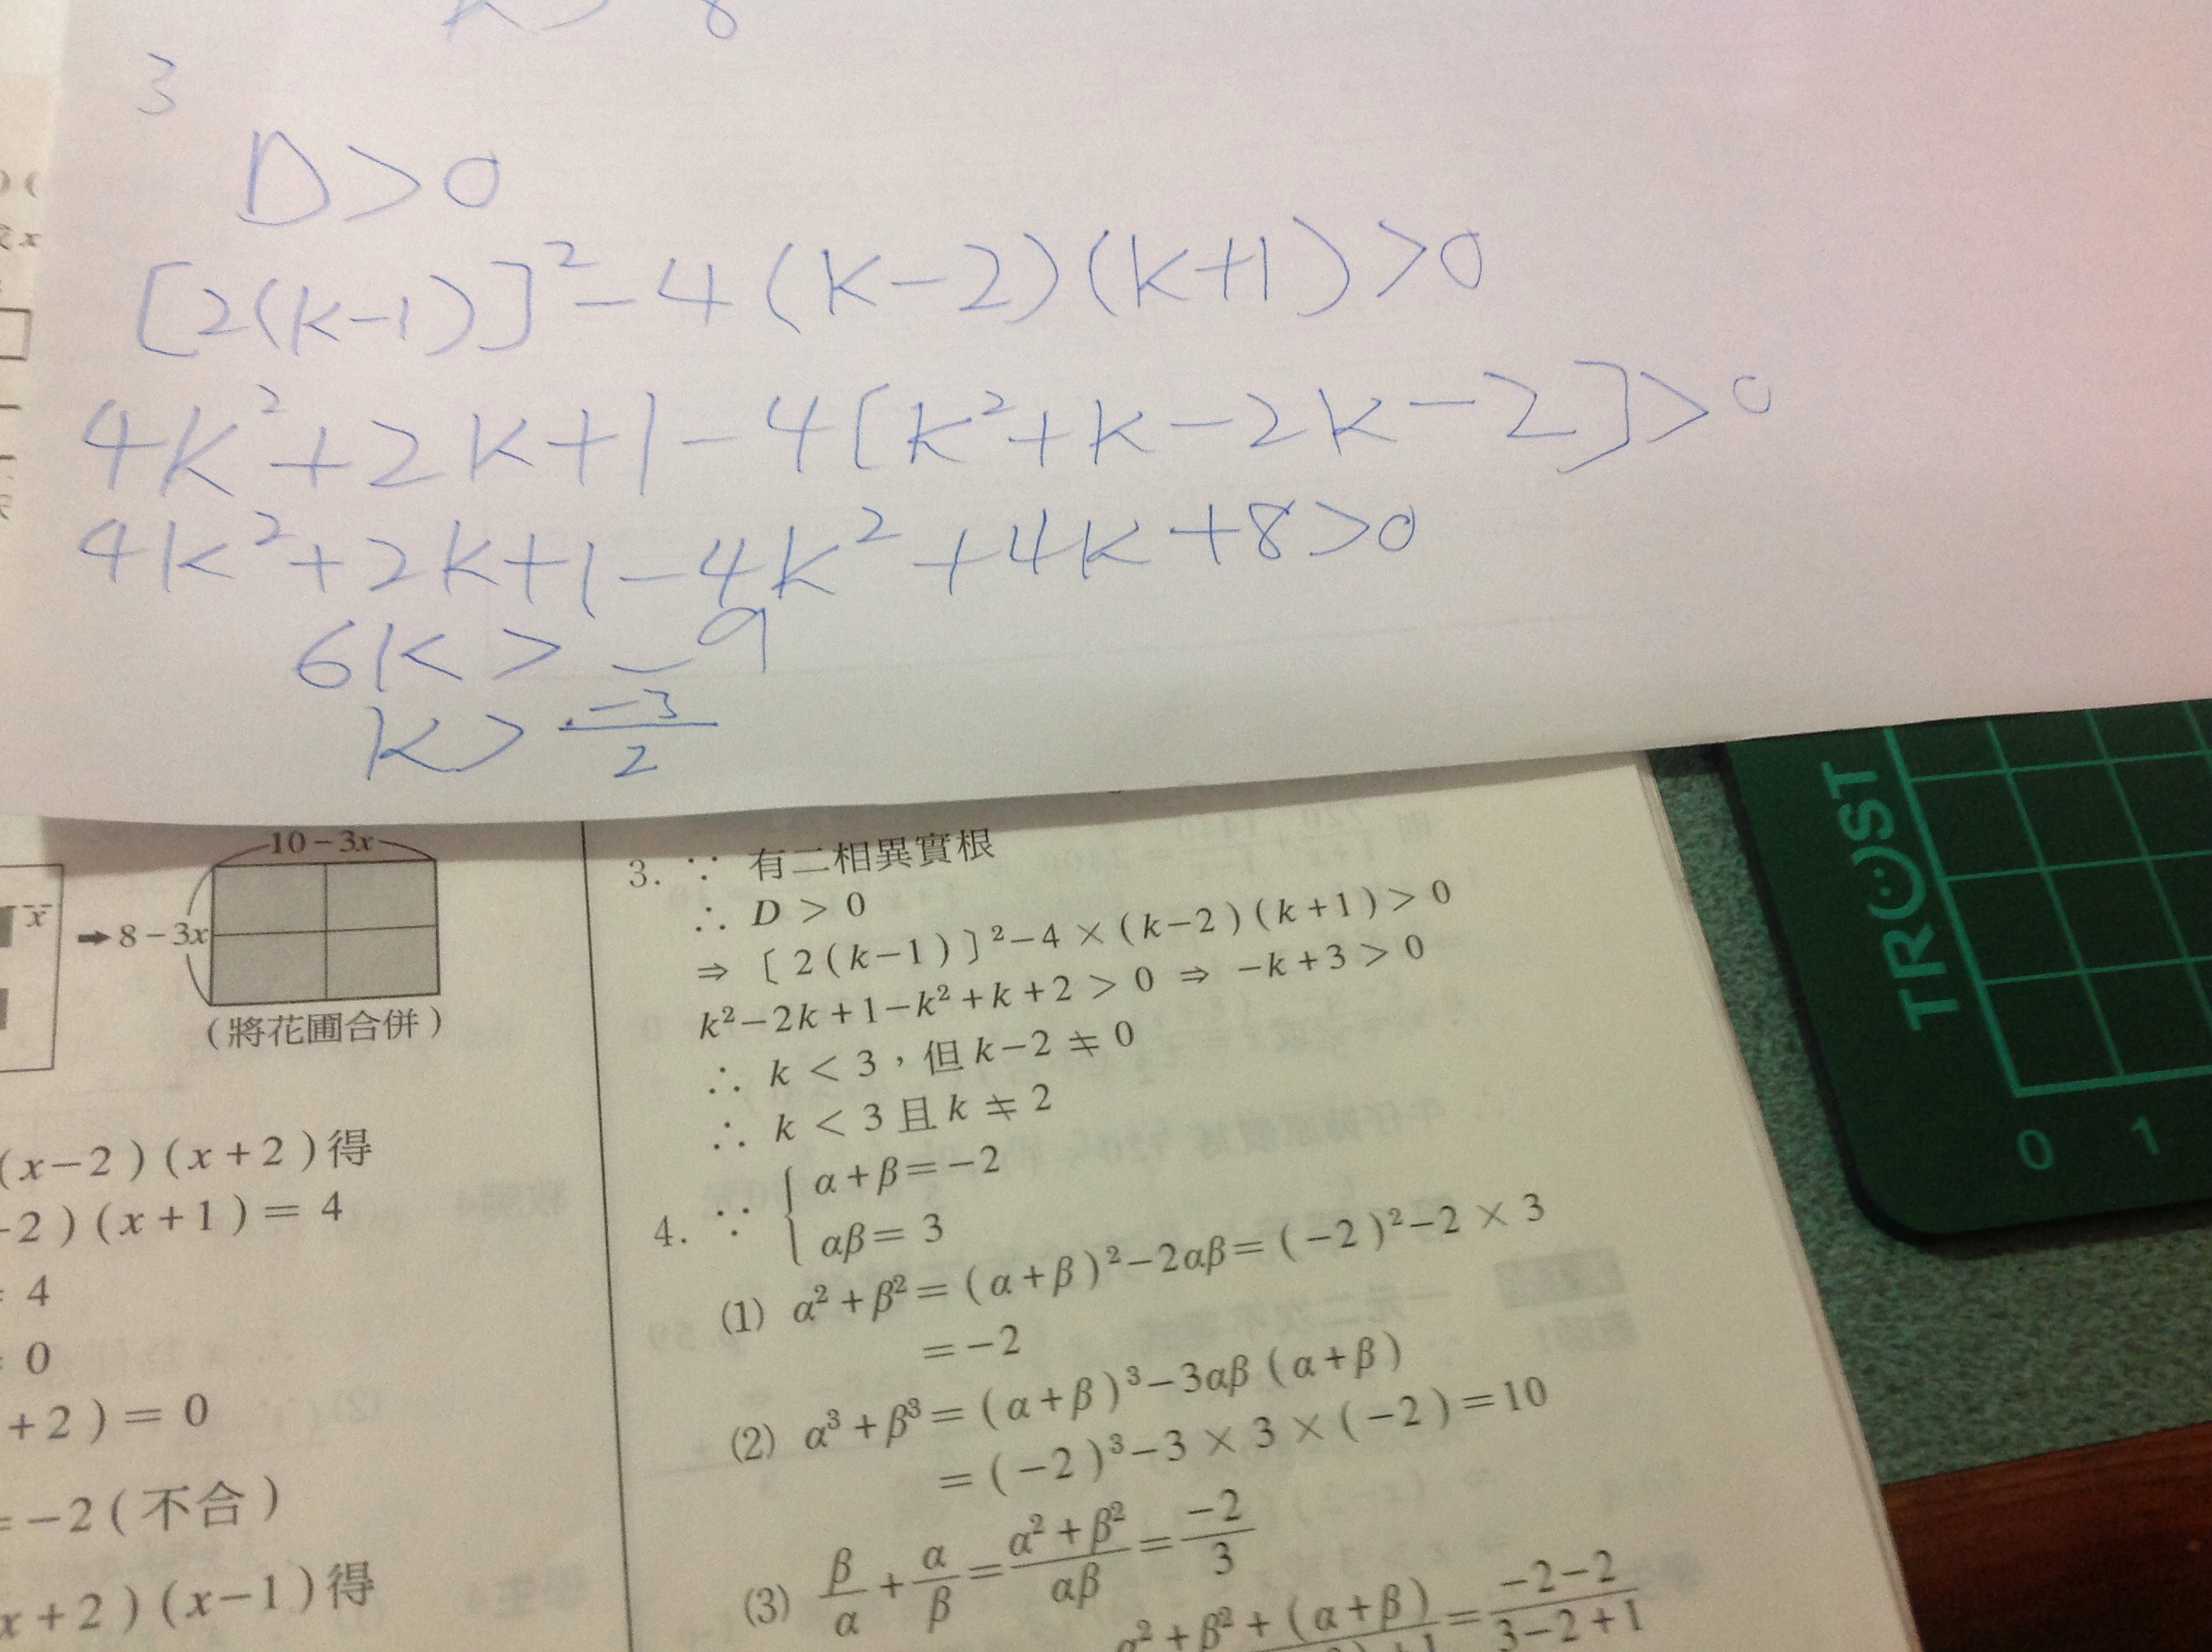 k > 8
3
D > 0
[2(k-1)]² - 4(k-2)(k+1) > 0
4k² + 2k + 1 - 4[k² + k - 2k - 2] > 0
4k² + 2k + 1 - 4k² + 4k + 8 > 0
6k > -9
k > -3/2
10-3x
x
➡ 8-3x
(將花圃合併)
(x-2)(x+2)得
-2)(x+1)=4
= 4
= 0
+2)=0
=-2(不合)
x+2)(x-1)得
3. ∵ 有二相異實根
∴ D > 0
⇒ [2(k-1)]²-4×(k-2)(k+1) > 0
k²-2k+1-k²+k+2 > 0 ⇒ -k+3 > 0
∴ k < 3,但 k-2≠0
∴ k < 3 且 k≠2
4. ∵ { α+β=-2
αβ=3
(1) α²+β²=(α+β)²-2αβ=(-2)²-2×3
=-2
(2) α³+β³=(α+β)³-3αβ(α+β)
=(-2)³-3×3×(-2)=10
(3) β/α + α/β = (α²+β²)/αβ = -2/3
α²+β²+(α+β) = (-2-2)/(3-2+1)
TRUST
0 1